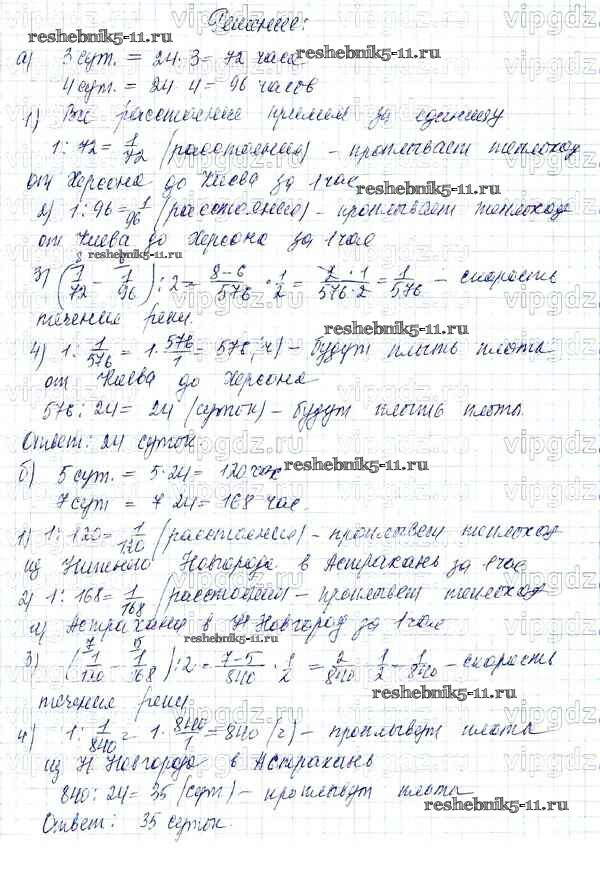 Решение:
а) 3 сут. = 24 · 3 = 72 часа
4 сут. = 24 · 4 = 96 часов
1) Всё расстояние примем за единицу
1 : 72 = 1/72 (расстояния) – проплывает теплоход
от Херсона до Киева за 1 час
2) 1 : 96 = 1/96 (расстояния) – проплывает теплоход
от Киева до Херсона за 1 час
3) (1/72 - 1/96) : 2 = (8-6)/576 · 1/2 = (2 · 1)/(576 · 2) = 1/576 – скорость
течения реки.
4) 1 : 1/576 = 1 · 576/1 = 576 (ч) – будут плыть плоты
от Киева до Херсона
576 : 24 = 24 (суток) – будут плыть плоты.
Ответ: 24 суток.
б) 5 сут. = 5 · 24 = 120 час
7 сут = 7 24 = 168 час.
1) 1 : 120 = 1/120 (расстояния) – проплывет теплоход
из Нижнего Новгорода в Астрахань за 1 час
2) 1 : 168 = 1/168 (расстояния) – проплывет теплоход
из Астрахани в Н Новгород за 1 час
3) (1/120 - 1/168) : 2 = (7-5)/840 · 1/2 = 2/840 · 1/2 = 1/840 – скорость
течения реки
4) 1 : 1/840 = 1 · 840/1 = 840 (ч) – проплывут плоты
из Н Новгорода в Астрахань
840 : 24 = 35 (сут) – проплывут плоты
Ответ: 35 суток.
reshebnik5-11.ru
vipgdz.ru